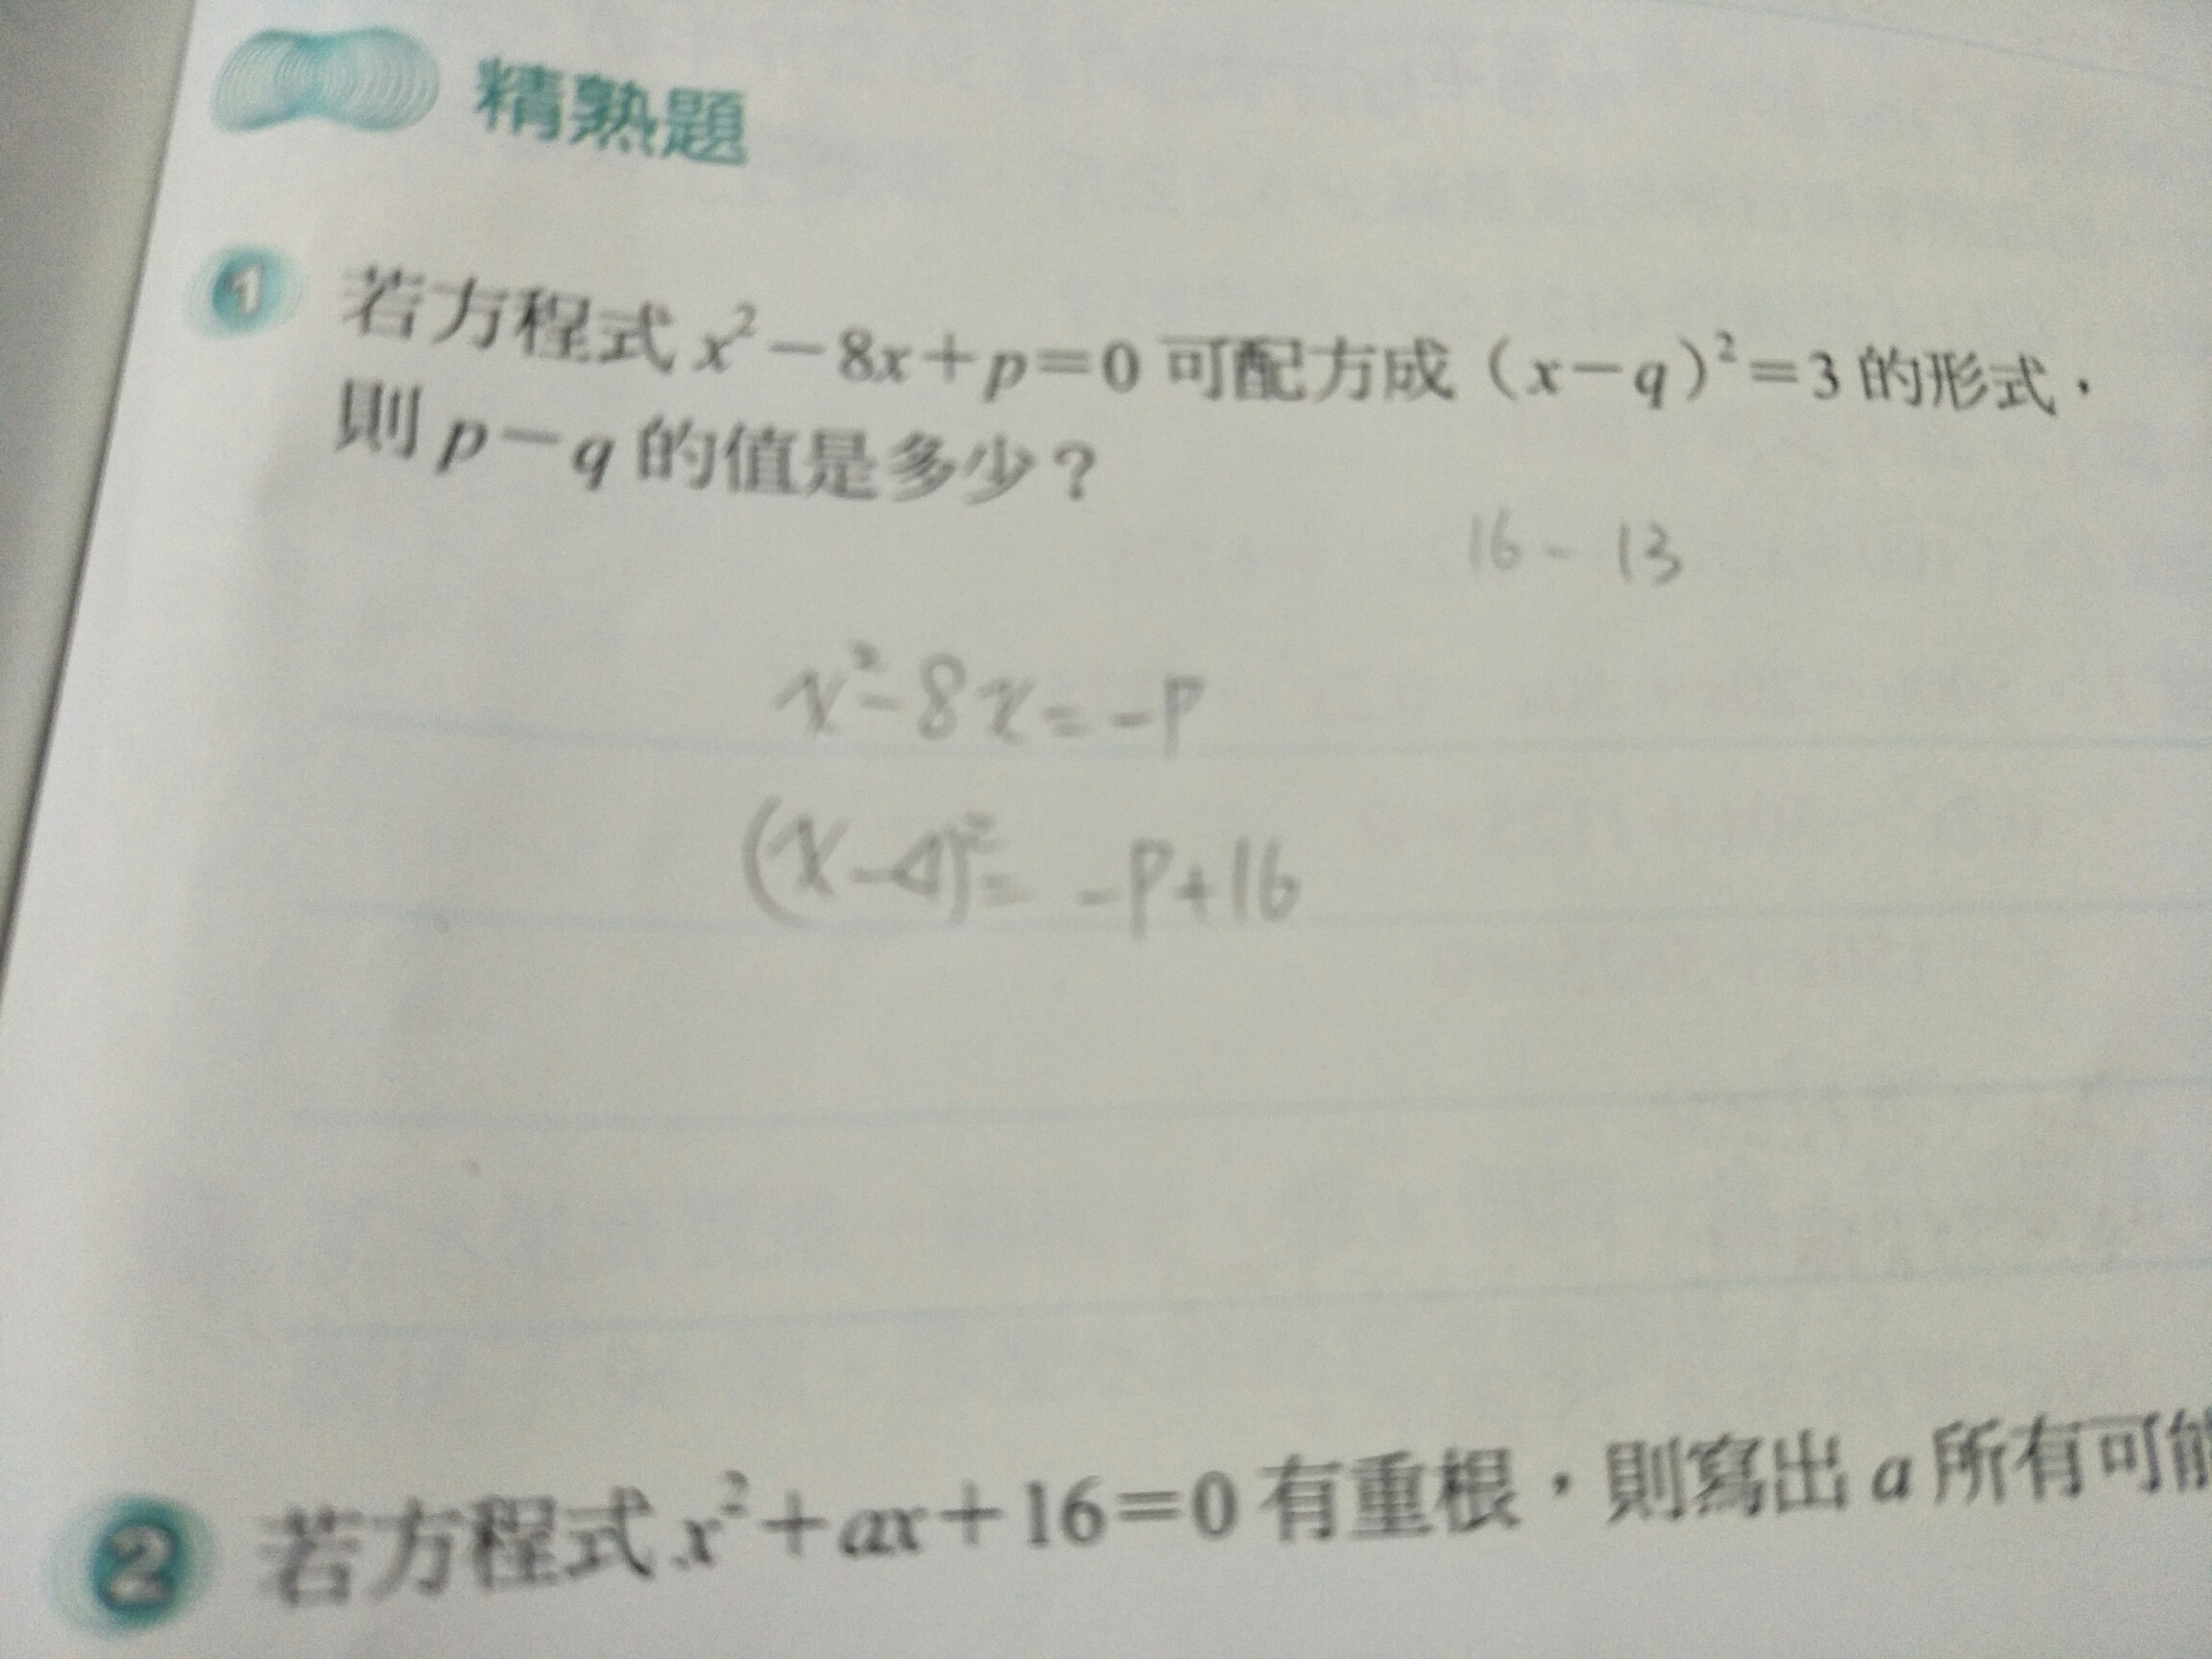 精熟題
1 若方程式 x²－8x＋p＝0 可配方成（x－q）²＝3 的形式，
則 p－q 的值是多少？
16 - 13
x² - 8x = -P
(x-4)² = -P+16
2 若方程式 x²＋ax＋16＝0 有重根，則寫出 a 所有可能